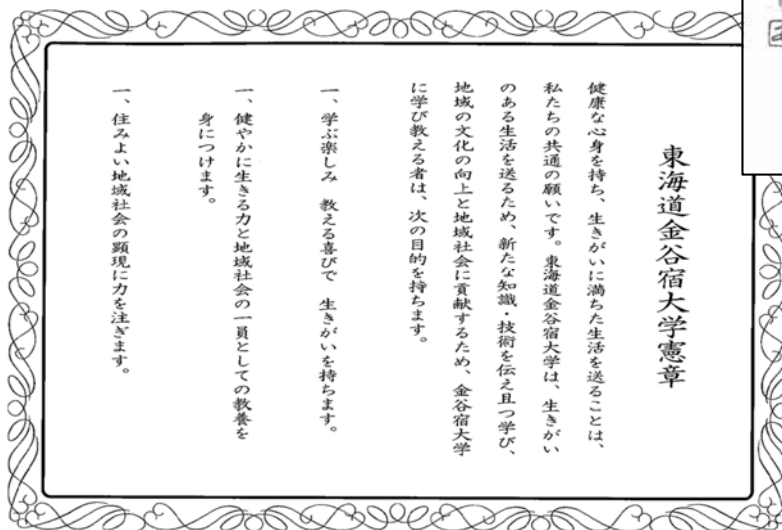 東海道金谷宿大学憲章
健康な心身を持ち、生きがいに満ちた生活を送ることは、
私たちの共通の願いです。東海道金谷宿大学は、生きがい
のある生活を送るため、新たな知識・技術を伝え且つ学び、
地域の文化の向上と地域社会に貢献するため、金谷宿大学
に学び教える者は、次の目的を持ちます。
一、学ぶ楽しみ　教える喜びで　生きがいを持ちます。
一、健やかに生きる力と地域社会の一員としての教養を
身につけます。
一、住みよい地域社会の顕現に力を注ぎます。